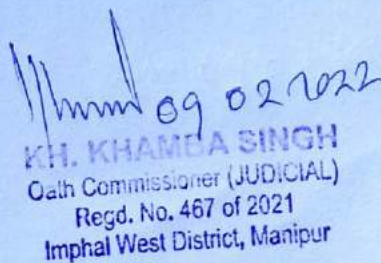 09 02 2022
KH. KHAMBA SINGH
Oath Commissioner (JUDICIAL)
Regd. No. 467 of 2021
Imphal West District, Manipur